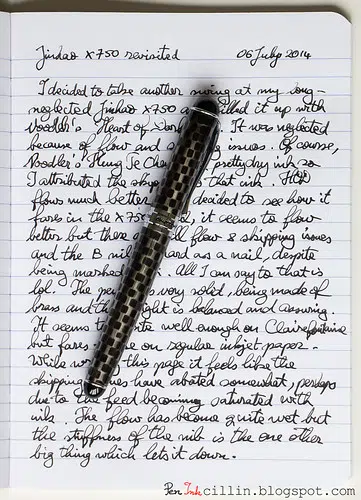 Jinhao x750 revisited 06 July 2014
I decided to take another swing at my long-
neglected Jinhao x750 a filled it up with
Noodler's Heart of Dark. It was neglected
because of flow and s issues. Of course,
Noodler's Kung Te Ch pretty dry ink so
I attributed the skip to that ink. HOD
flows much better decided to see how it
fares in the x750, it seems to flow
better but there still flow & skipping issues
and the B nib hard as a nail, despite
being marked. All I can say to that is
lol. The pen very solid, being made of
brass and th ght is balanced and assuring.
It seems to te well enough on Clairefontaine
but fares on regular inkjet paper.
While w g this page it feels like the
skipping ues have abated somewhat, perhaps
due to the feed becoming saturated with
ink. The flow has become quite wet but
the stiffness of the nib is the one other
big thing which lets it down.
Pen Inkcillin.blogspot.com